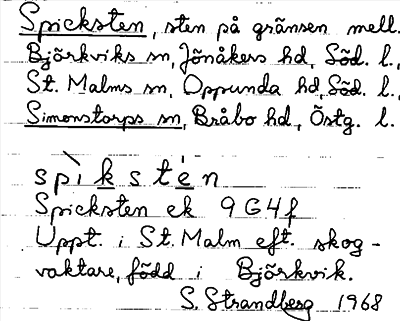 Spicksten, sten på gränsen mell.
Björkviks sn, Jönåkers hd, Söd. l.,
St. Malms sn, Oppunda hd, Söd. l.,
Simonstorps sn, Bråbo hd, Östg. l.
spìkstén
Spicksten ek 9G4f
Uppt. i St. Malm eft. skog-
vaktare, född i Björkvik.
S. Strandberg 1968